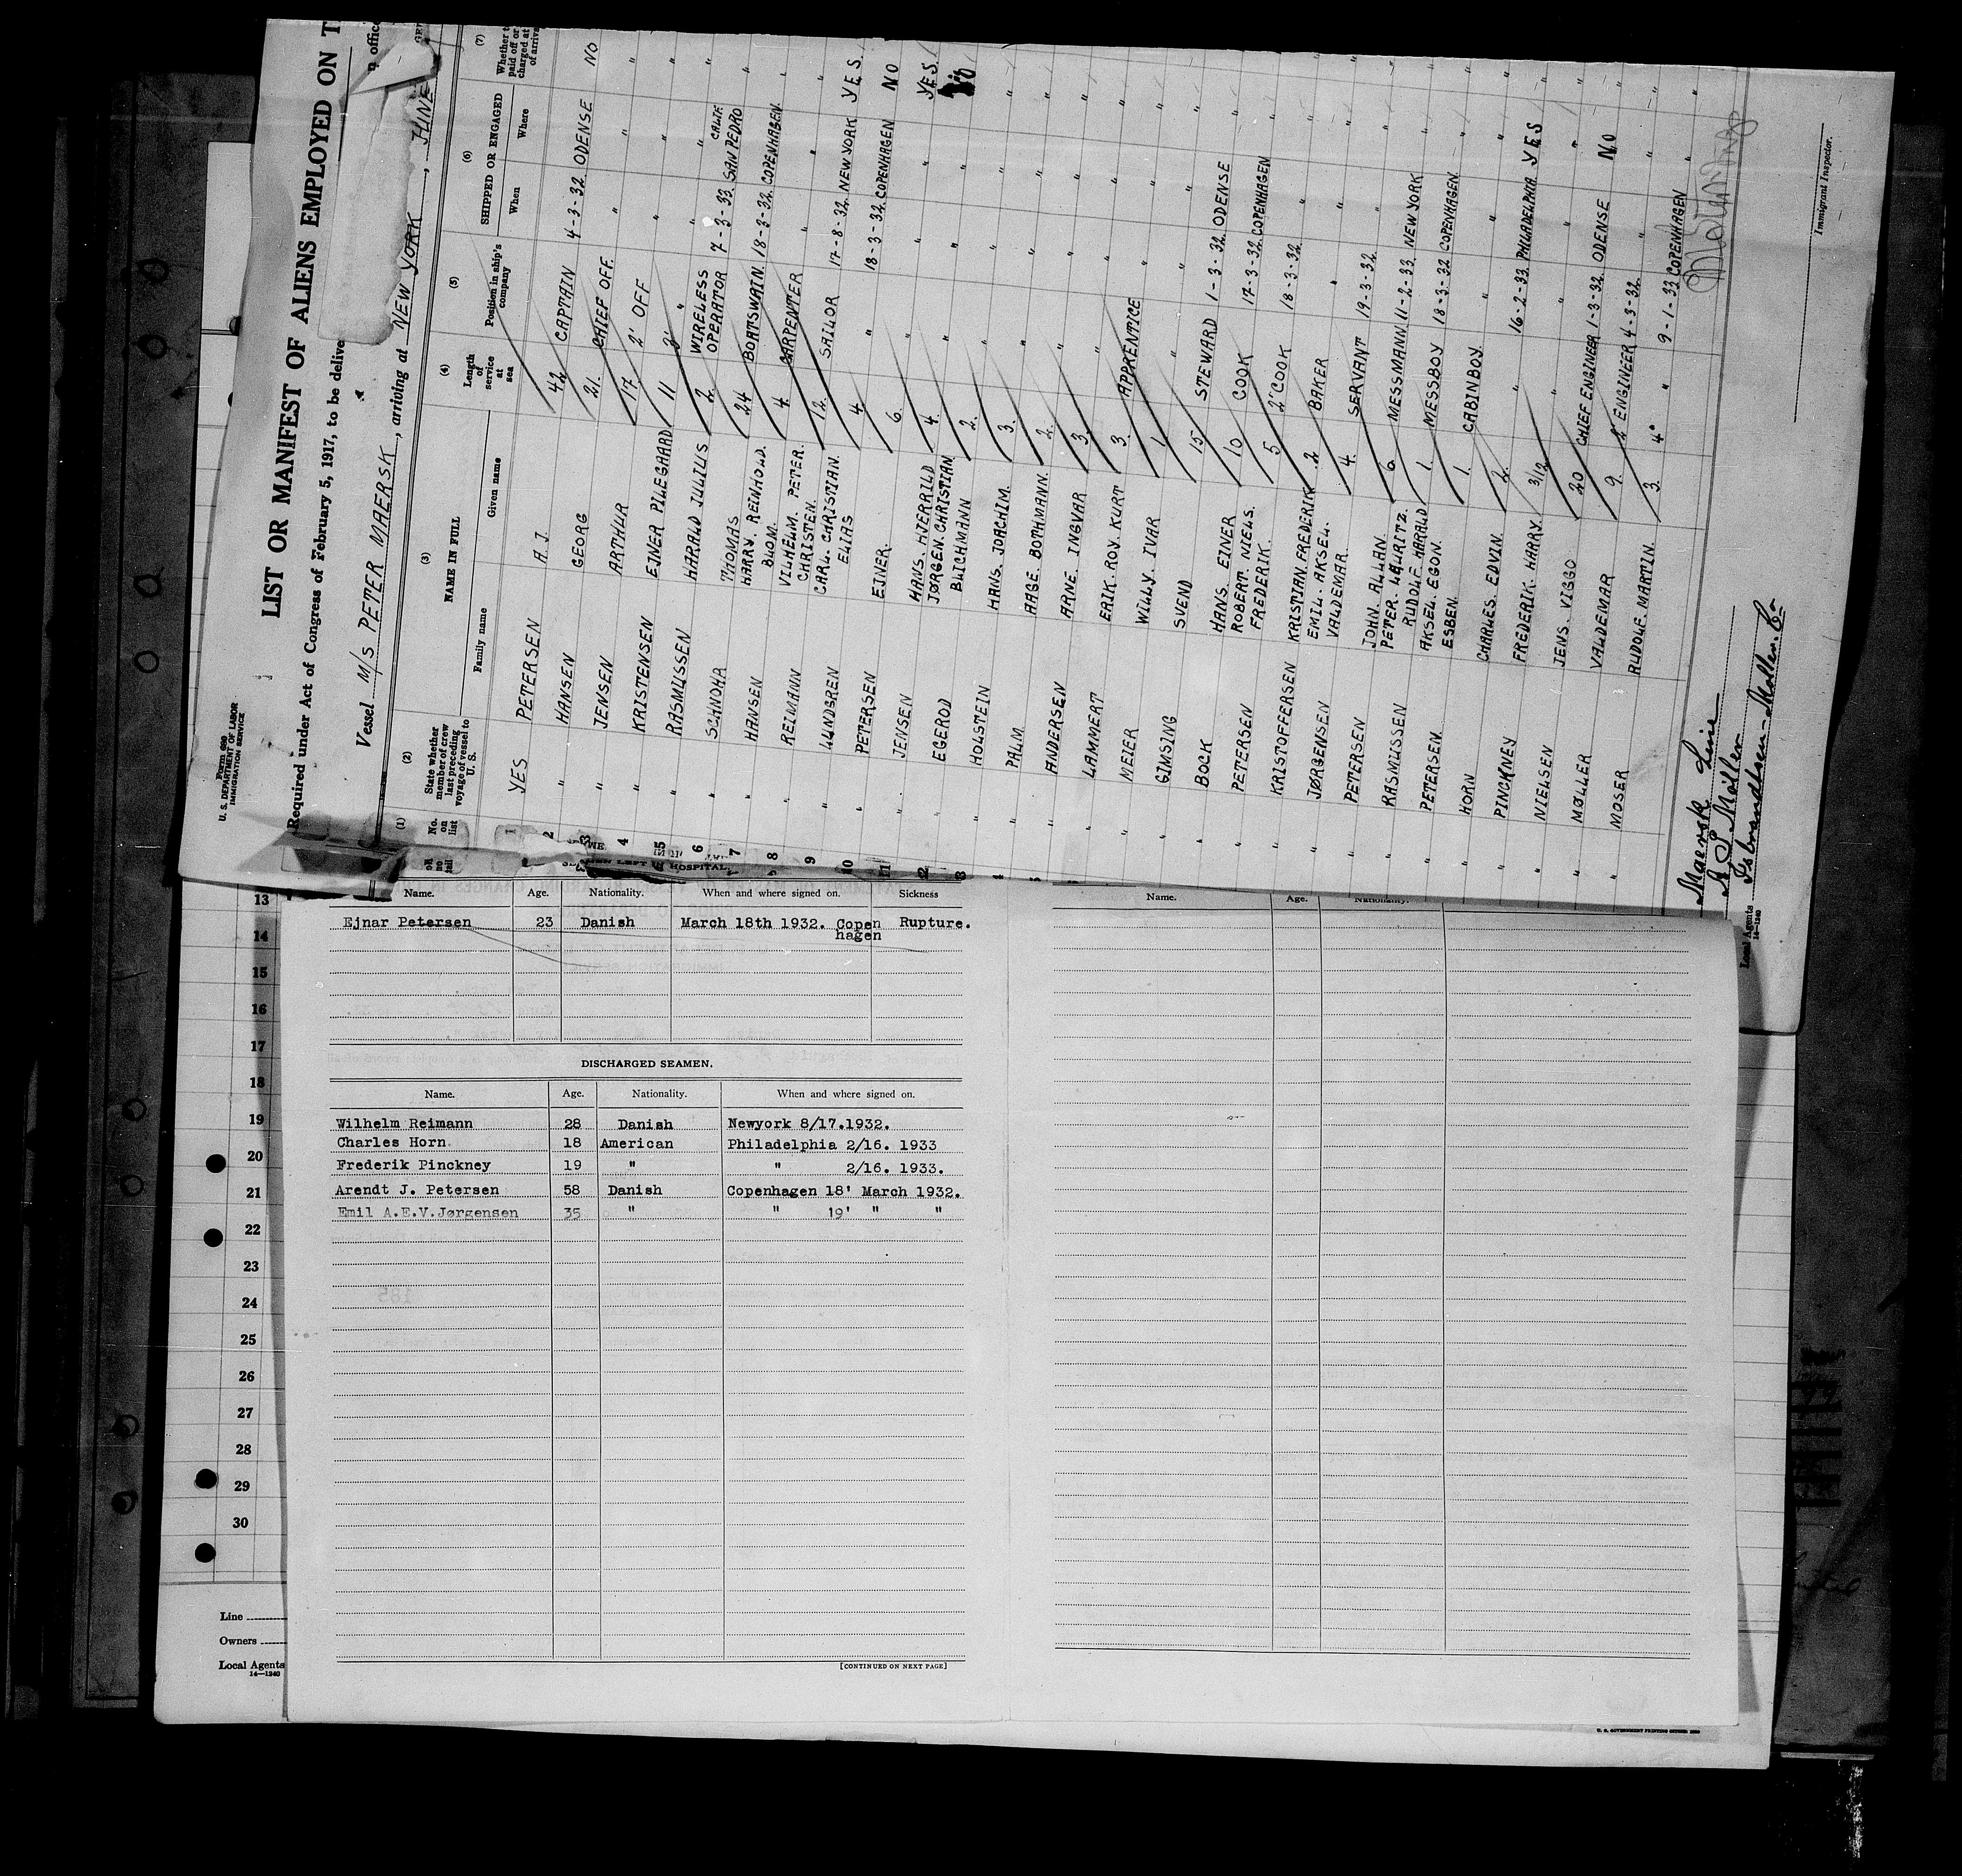 Form 689
U. S. DEPARTMENT OF LABOR
IMMIGRATION SERVICE
LIST OR MANIFEST OF ALIENS EMPLOYED ON T
Required under Act of Congress of February 5, 1917, to be delive
n office
Vessel M/S PETER MAERSK, arriving at NEW YORK, JUNE
(1) (2) (3) (4) (5) (6) (7)
No. on list
State whether member of crew last preceding voyage of vessel to U. S.
NAME IN FULL
Family name Given name
Length of service at sea
Position in ship's company
SHIPPED OR ENGAGED
When Where
Whether t
paid off or
charged at
of arriva
1 YES PETERSEN A.J. 42 CAPTAIN 4-3-32 ODENSE NO
2 " HANSEN GEORG 21. CHIEF OFF. " " "
3 " JENSEN ARTHUR 17 2' OFF " " "
4 " KRISTENSEN EJNER PILEGAARD 11 3' " " " "
5 " RASMUSSEN HARALD JULIUS 2 WIRELESS OPERATOR 7-3-33 CALIF. SAN PEDRO "
6 " SCHNOHR THOMAS 24 BOATSWAIN 18-3-32 COPENHAGEN "
7 " HANSEN HARRY. REINHOLD. BLOM. 4 CARPENTER " " "
8 " REIMANN VILHELM. PETER. CHRISTEN. 12. SAILOR 17-8-32 NEW YORK YES
9 " LUNDGREN CARL. CHRISTIAN. ELIAS 4. " 18-3-32 COPENHAGEN NO
10 " PETERSEN EJNER. 6 " " " YES
11 " JENSEN HANS. HJERRILD 4. " " " NO
12 " EGEROD JØRGEN. CHRISTIAN BLICHMANN 2. " " " "
" HOLSTEIN HANS. JOACHIM. 3. " " " "
" PALM. AAGE. BOTHMANN. 2. " " " "
" ANDERSEN ARNE. INGVAR 3. " " " "
" LAMMERT ERIK. ROY. KURT 3. APPRENTICE " " "
" MEIER WILLY. IVAR 1. " " " "
" GIMSING SVEND
" BOCK HANS. EINER 15 STEWARD 1-3-32 ODENSE "
" PETERSEN ROBERT. NIELS. FREDERIK. 10 COOK 17-3-32 COPENHAGEN "
" KRISTOFFERSEN KRISTIAN. FREDERIK 5 2'COOK 18-3-32 " "
" JØRGENSEN EMIL. AKSEL. VALDEMAR. 2 BAKER " " "
" PETERSEN JOHN. ALLAN. 4. SERVANT 19-3-32 " "
" RASMUSSEN PETER. LAURITZ. RUDOLF. HARALD 6 MESSMANN 11-2-33 NEW YORK "
" PETERSEN. AKSEL. EGON. ESBEN. 1. MESSBOY 18-3-32 COPENHAGEN "
" HORN CHARLES. EDVIN. 1. CABINBOY. " " "
" PINCKNEY FREDERIK. HARRY. 2. " 16-2-33 PHILADELPHIA YES
" NIELSEN JENS. VIGGO 3/12 " " " "
" MØLLER VALDEMAR 20 CHIEF ENGINEER 1-3-32 ODENSE NO
" MOSER RUDOLF. MARTIN. 9. 2' ENGINEER 4-3-32 " "
3. 4' " 9-1-33 COPENHAGEN "
Maersk Line
A P Möller
Local Agents Isbrandtsen-Moller Co
14—1240
Immigrant Inspector.
HOSPITAL
Name. Age. Nationality. When and where signed on. Sickness
Ejnar Petersen 23 Danish March 18th 1932. Copen hagen Rupture.
Name. Age. Nationality.
DISCHARGED SEAMEN.
Name. Age. Nationality. When and where signed on.
Wilhelm Reimann 28 Danish Newyork 8/17.1932.
Charles Horn. 18 American Philadelphia 2/16. 1933
Frederik Pinckney 19 " " 2/16. 1933.
Arendt J. Petersen 58 Danish Copenhagen 18' March 1932.
Emil A.E.V.Jørgensen 35 " " 19' " "
[CONTINUED ON NEXT PAGE]
13
14
15
16
17
18
19
20
21
22
23
24
25
26
27
28
29
30
Line
Owners
Local Agents
14—1240
U. S. GOVERNMENT PRINTING OFFICE